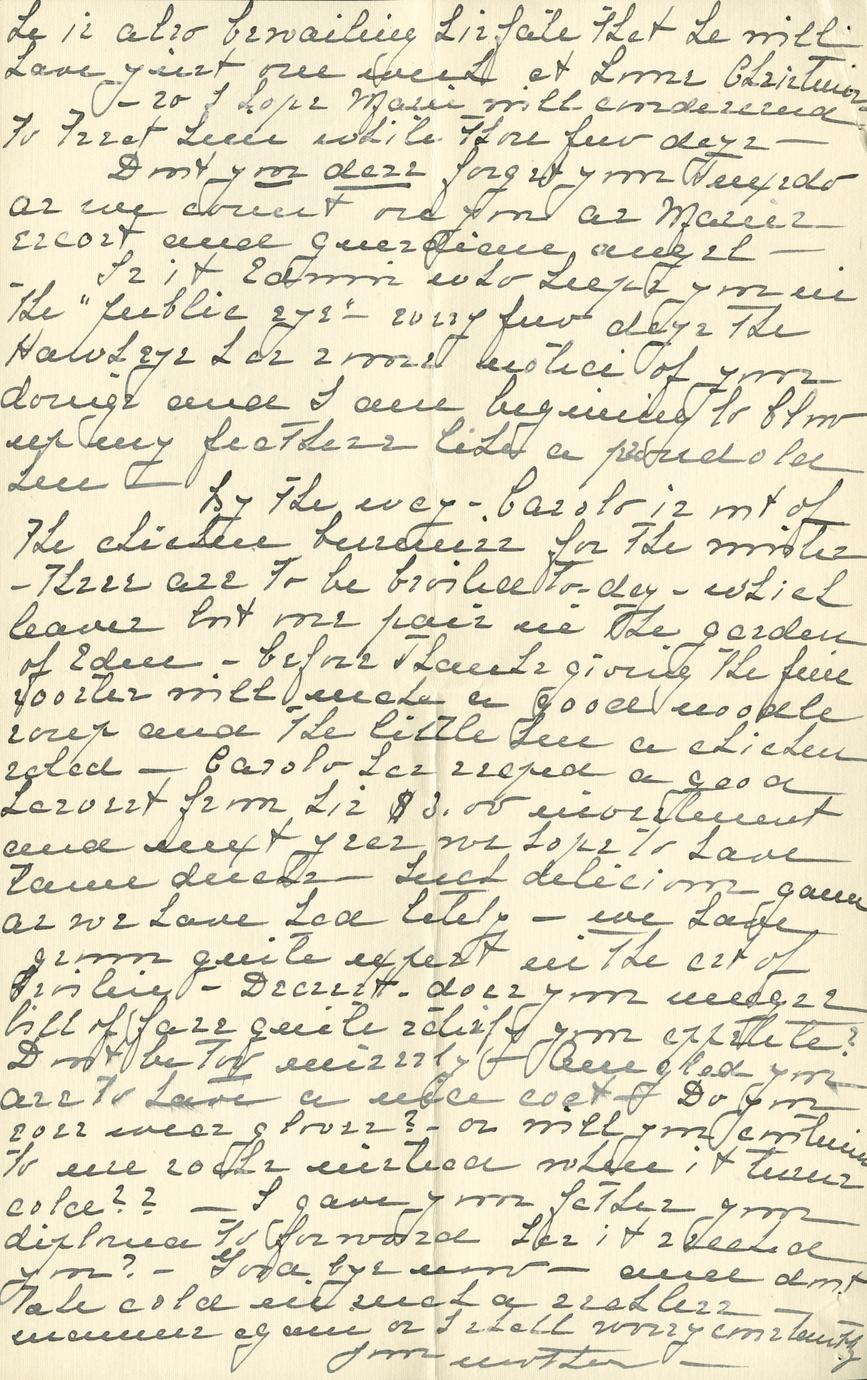 He is also bewailing his fate that he will
have just one week at home Christmas
- so I hope Marie will condescend
to treat him white those few days —
Dont you dare forget your Tuxedo
as we count on you as Maries
escort and guardian angel —
- Is it Edwin who keeps you in
the "public eye" - every few days the
Hawkeye has some notice of your
doings and I am beginning to blow
up my feathers like a proud old
hen — By the way - Carolo is out of
the chicken business for the winter
- Three are to be broiled to-day - which
leaves but one pair in the garden
of Eden - before Thanksgiving the fine
rooster will make a good noodle
soup and the little hen a chicken
salad — Carolo has reaped a good
harvest from his $3.00 investment
and next year we hope to have
tame ducks — Such delicious game
as we have had lately — we have
grown quite expert in the art of
broiling - Dearest - does your meager
bill of fare quite satisfy your appetite?
Dont be too miserly - Am glad you
are to have a nice coat - Do you
ever wear gloves? - or will you continue
to use socks instead when it turns
cold?? — I gave your father your
diploma to forward has it reached
you? - Good bye now — and dont
take cold in such a reckless
manner again or I shall worry constantly
your mother —